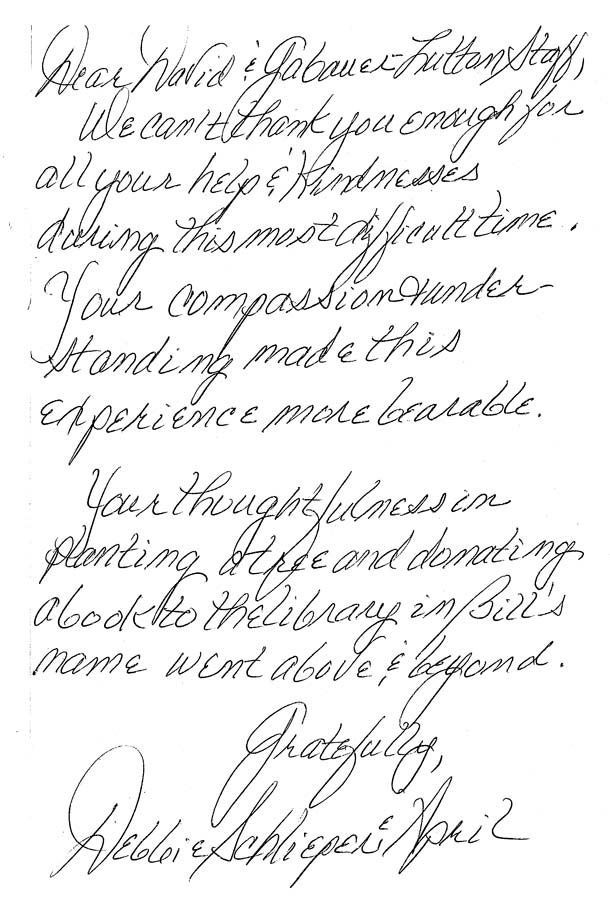 Dear David & Gabauer-Lutton Staff,
We can't thank you enough for
all your help & kindnesses
during this most difficult time.
Your compassion & under-
standing made this
experience more bearable.
Your thoughtfulness in
planting a tree and donating
a book to the library in Bill's
name went above & beyond.
Gratefully,
Debbie Schlieper & April